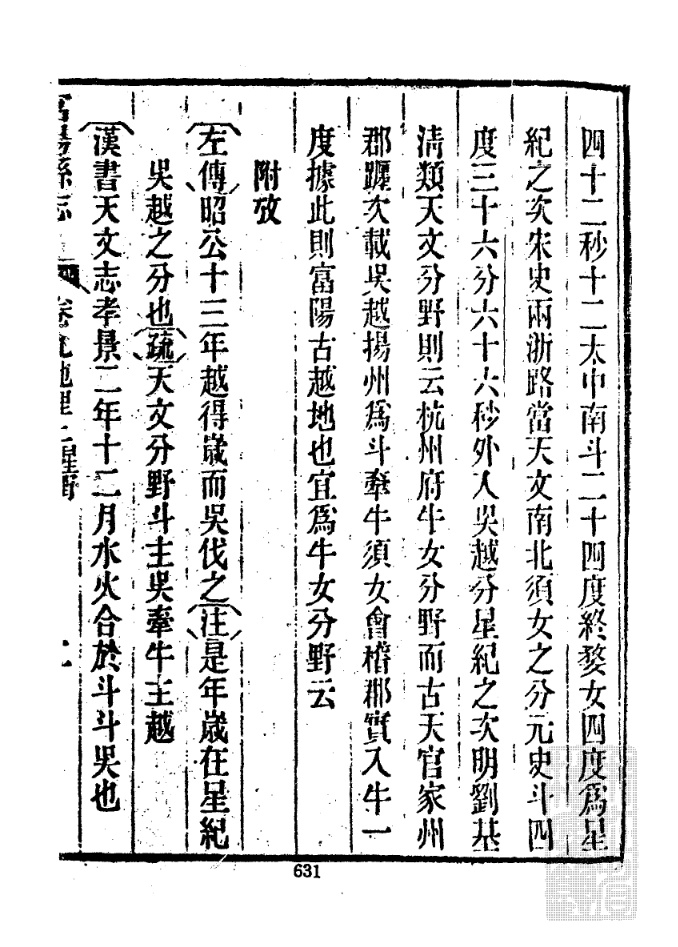 四十二秒十二太中南斗二十四度終婺女四度爲星
紀之次宋史兩浙路當天文南北須女之分元史斗四
度三十六分六十六秒外入吳越分星紀之次明劉基
淸類天文分野則云杭州府牛女分野而古天官家州
郡躔次載吳越揚州爲斗牽牛須女會稽郡實入牛一
度據此則富陽古越地也宜爲牛女分野云
附攷
左傳昭公十三年越得歲而吳伐之注是年歲在星紀
吳越之分也疏天文分野斗主吳牽牛主越
漢書天文志孝景二年十二月水火合於斗斗吳也
富陽縣志 卷九地理上星野
631